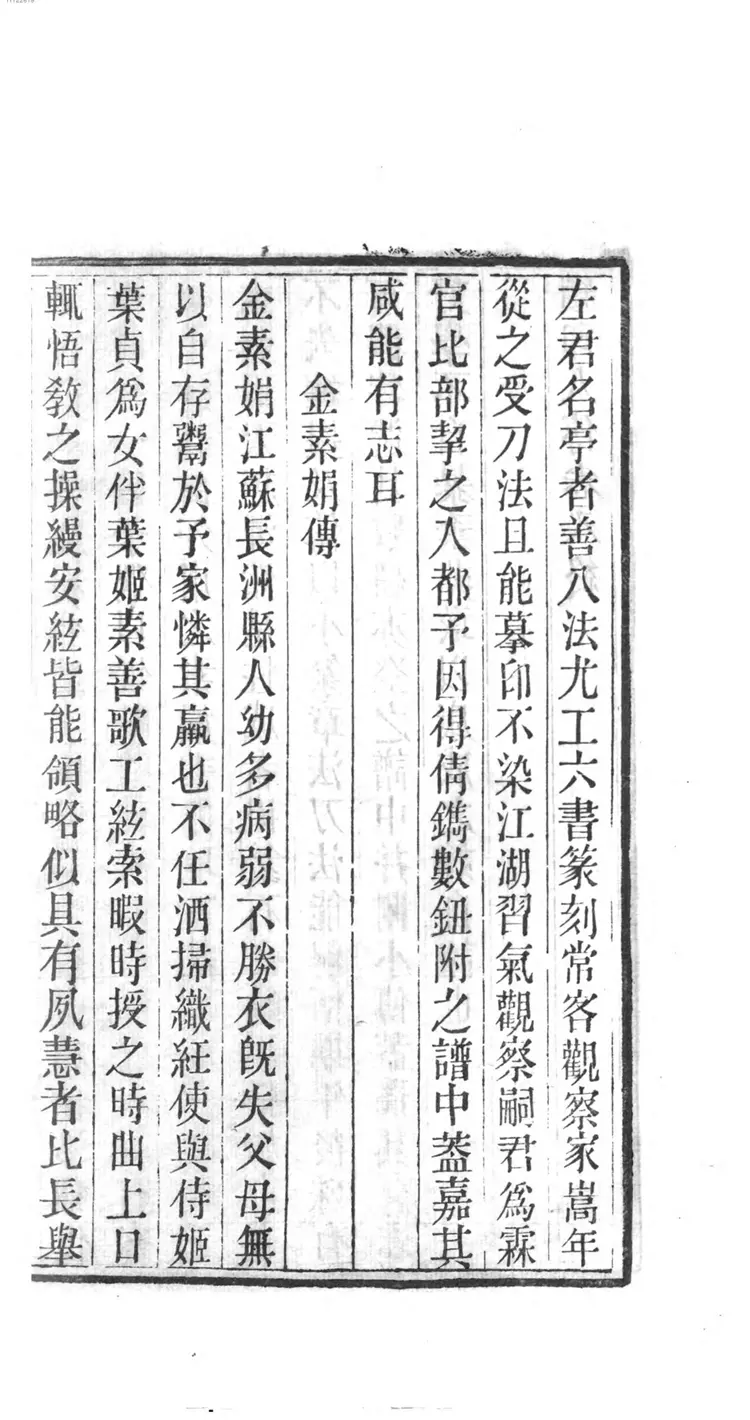 左君名亭者善八法尤工六書篆刻常客觀察家嵩年
從之受刀法且能摹印不染江湖習氣觀察嗣君爲霖
官比部挈之入都予因得倩鐫數鈕附之譜中葢嘉其
咸能有志耳
金素娟傳
金素娟江蘇長洲縣人幼多病弱不勝衣旣失父母無
以自存鬻於予家憐其羸也不任洒掃織紝使與侍姬
葉貞爲女伴葉姬素善歌工絃索暇時授之時曲上口
輒悟敎之操縵安絃皆能領略似具有夙慧者比長舉